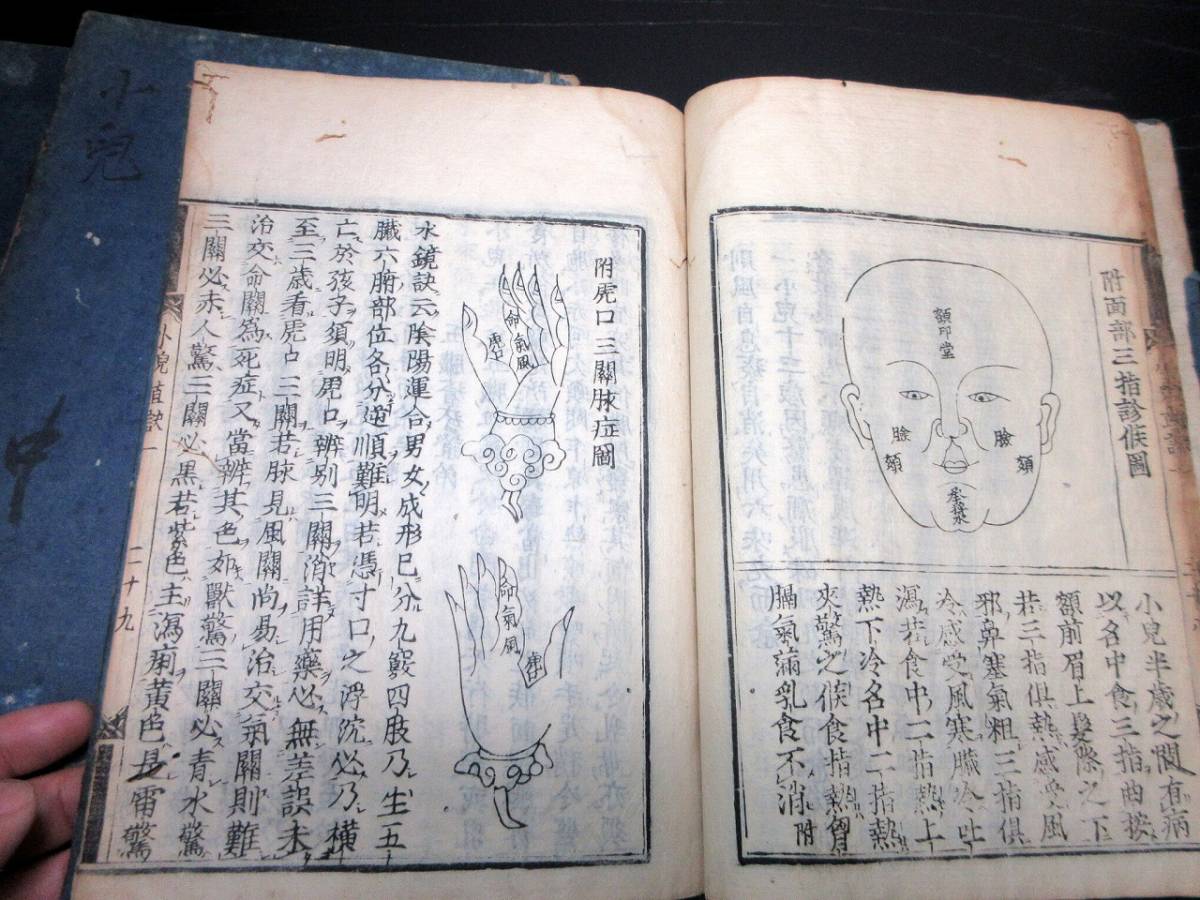 附面部三指診候圖
額印堂
臉
臉
頰
頰
承漿
小兒半歲之間有病
以名中食三指曲按
額前眉上髮際之下
若三指俱熱感受風
邪鼻塞氣粗三指俱
冷感受風寒臟冷吐
瀉若食中二指熱上
熱下冷名中二指熱
夾驚之候食指熱胷
膈氣滿乳食不消
附
附虎口三關脉症圖
命
氣
風
虎口
命
氣
風
水鏡訣云陰陽運合男女成形已分九竅四肢乃生五
臟六腑部位各分逆順難明若憑寸口之浮沉必乃橫
亡於孩子須明虎口辨别三關消詳用藥必無差誤未
至三歲看虎口三關若脉見風關尚易治交氣關則難
治交命關為死症又當辨其色如獸驚三關必青水驚
三關必赤人驚三關必黑若紫色主瀉痢黃色是雷驚
小兒直訣一
二十九
小兒
中